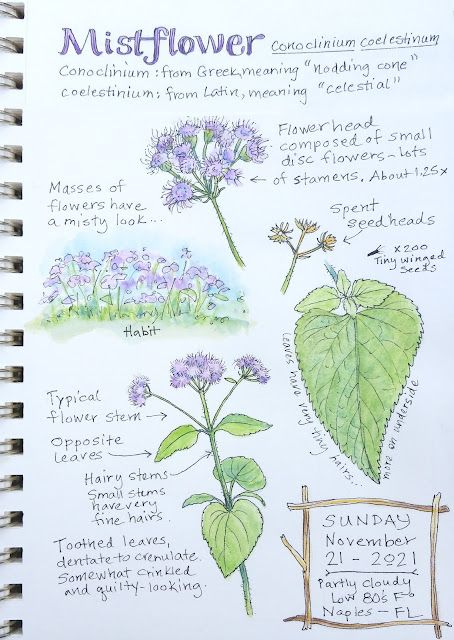 Mistflower Conoclinium coelestinum
Conoclinium: from Greek, meaning "nodding cone"
coelestinium: from Latin, meaning "celestial"
Flower head
composed of small
disc flowers - lots
of stamens. About 1.25x
Masses of
flowers have
a misty look...
Spent
seedheads
x200
Tiny winged
seeds
Habit
Leaves have very tiny hairs...
more on underside
Typical
flower stem
Opposite
leaves
Hairy stems
Small stems
have very
fine hairs.
Toothed leaves,
dentate to crenulate.
Somewhat crinkled
and guilty-looking.
SUNDAY
November
21 - 2021
Partly Cloudy
Low 80's F
Naples - FL